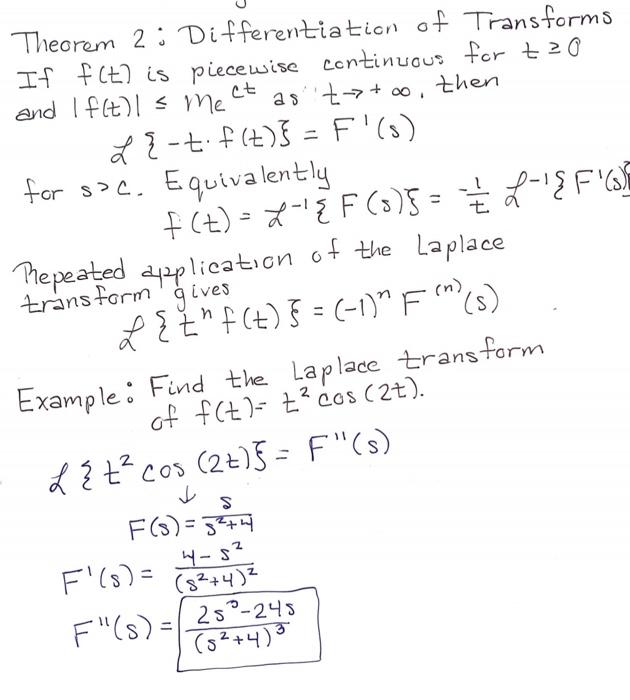 Theorem 2: Differentiation of Transforms
If f(t) is piecewise continuous for t ≥ 0
and |f(t)| ≤ Me^ct as t→+∞, then
ℒ{-t·f(t)} = F'(s)
for s>c. Equivalently
f(t) = ℒ⁻¹{F(s)} = -1/t ℒ⁻¹{F'(s)}
Repeated application of the Laplace
transform gives
ℒ{tⁿf(t)} = (-1)ⁿ F⁽ⁿ⁾(s)
Example: Find the Laplace transform
of f(t)= t² cos(2t).
ℒ{t² cos(2t)} = F''(s)
↓
F(s) = s/(s²+4)
F'(s) = (4-s²)/(s²+4)²
F''(s) = (2s³-24s)/(s²+4)³